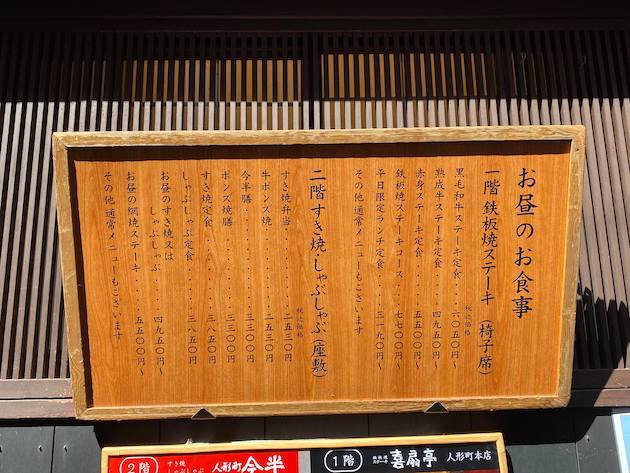 お昼のお食事
一階 鉄板焼ステーキ (椅子席)
税込価格
黒毛和牛ステーキ定食・・・・六〇五〇円〜
熟成牛ステーキ定食・・・・四九五〇円〜
赤身ステーキ定食・・・・五五〇〇円〜
鉄板焼ステーキコース・・・・七七〇〇円〜
平日限定ランチ定食・・・・三一九〇円〜
その他通常メニューもございます
二階 すき焼・しゃぶしゃぶ (座敷)
税込価格
すき焼弁当・・・・二五三〇円
牛ポンズ焼・・・・二五三〇円
今半膳・・・・三三〇〇円
ポンズ焼膳・・・・三三〇〇円
すき焼定食・・・・三八五〇円
しゃぶしゃぶ定食・・・・三八五〇円
お昼のすき焼又は
しゃぶしゃぶ・・・・四九五〇円〜
お昼の網焼ステーキ・・・・五五〇〇円〜
その他通常メニューもございます
2階 すき焼 しゃぶしゃぶ 人形町今半
1階 鉄板焼 ステーキ 喜扇亭 人形町本店